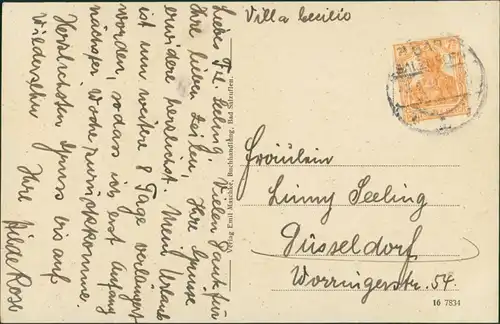 Villa Cecilie
Liebes Frl. Seeling! Vielen Dank für
Ihre lieben Zeilen, Ihre Grüsse
erwidere herzlichst. Mein Urlaub
ist um weitere 8 Tage verlängert
worden, sodass ich erst Anfang
nächster Woche zurückkomme.
Herzlichsten Gruss bis auf
Wiedersehn
Ihre Hilde Rose
Verlag Emil Maschke, Buchhandlung, Bad Salzuflen.
BAD
SALZUFLEN
Fräulein
Linny Seeling
Düsseldorf
Worringerstr. 54.
16 7834